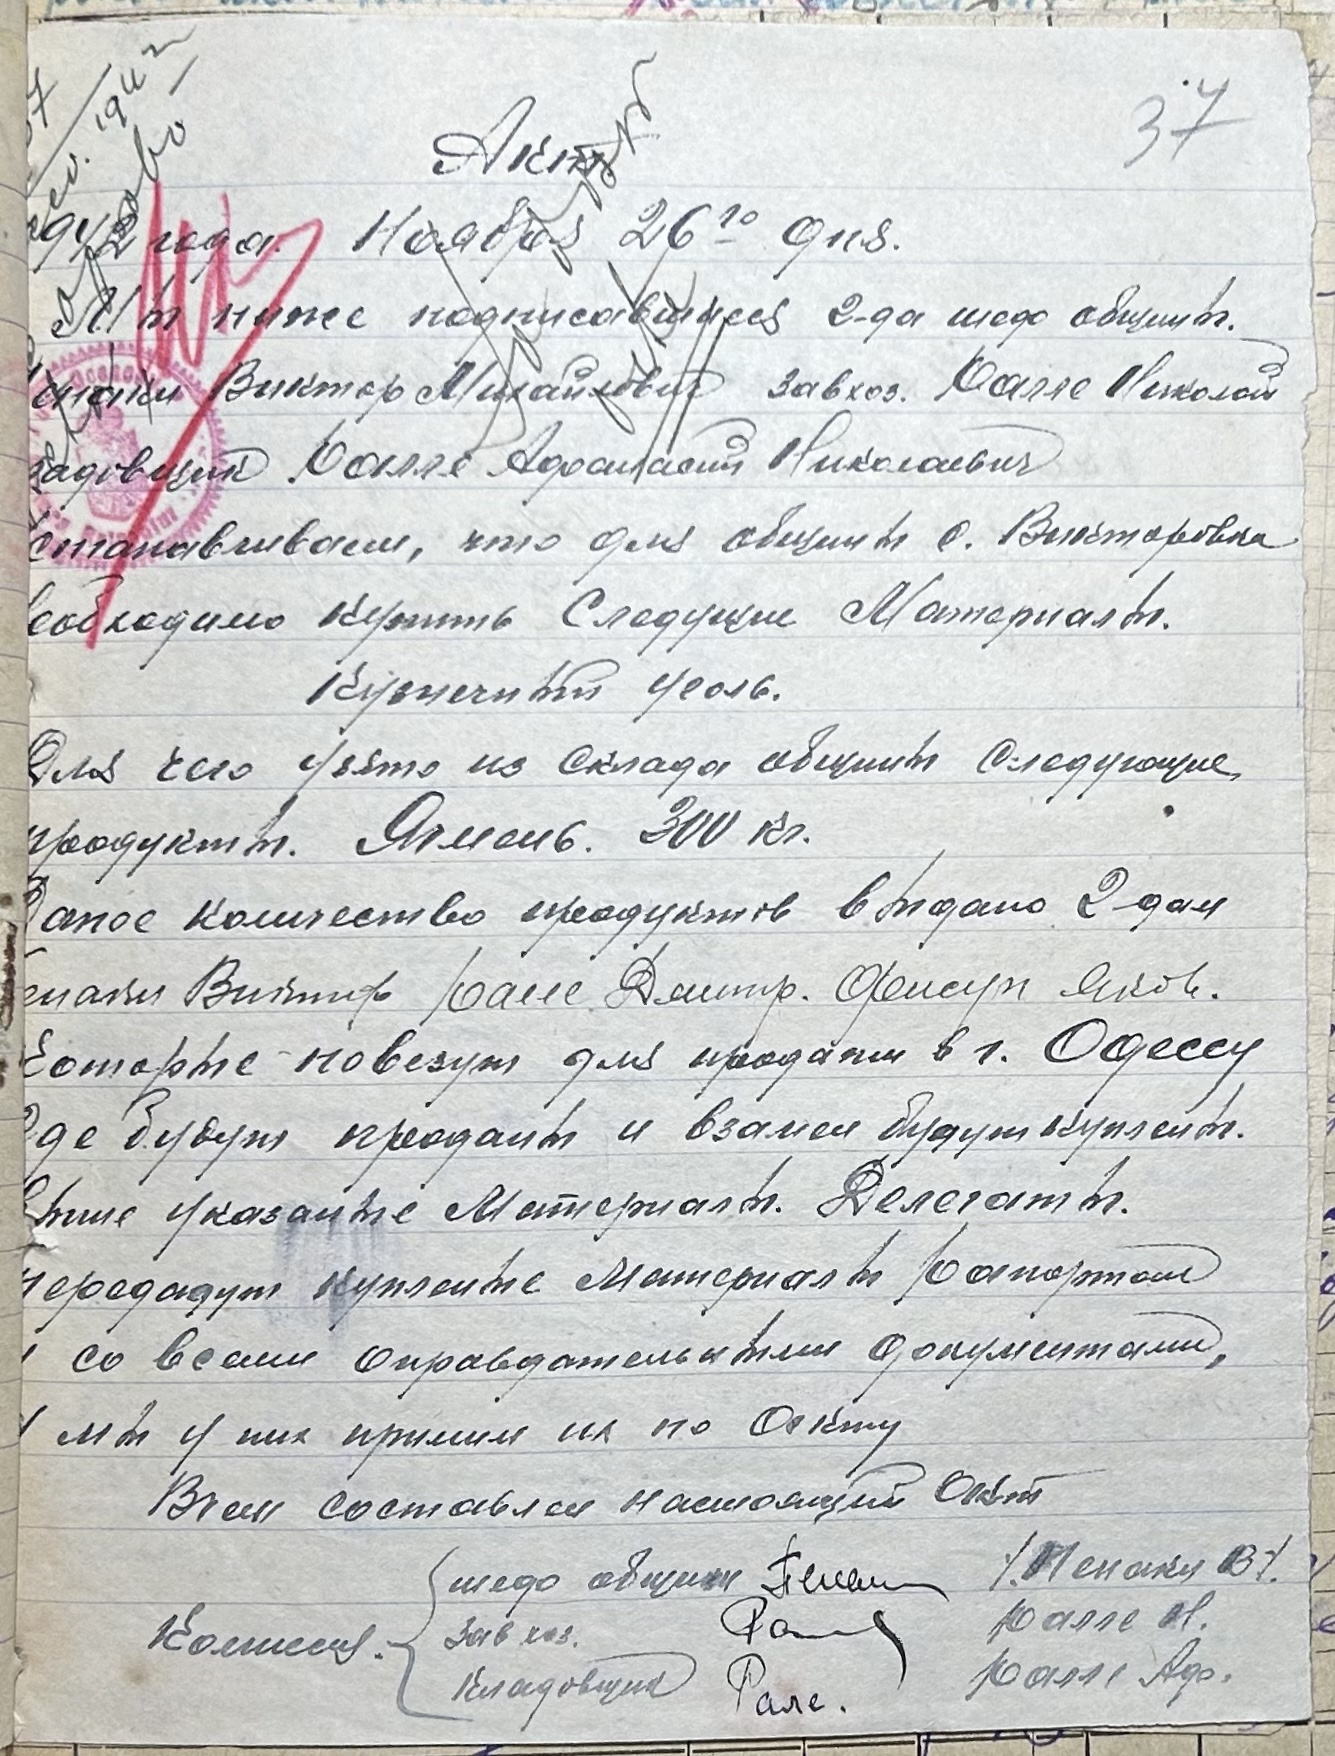 37
Акт
1942 года. Ноября 26го дня.
Мы ниже подписавшиеся 2-да шедо общины.
Пенаки Виктор Михайлович завхоз. Ралле Николай
кладовщик Ралле Афанасий Николаевич
Устанавливаем, что для общины с. Викторовка
необходимо купить Следущие Материалы.
Кузнечный уголь.
Для чего узято из склада общины следующие
продукты. Ячмень. 300 кг.
Даное количество продуктов выдано 2-дам
Пенаки Виктор Ралле Дмитр. Фенсун Яков.
Которые повезут для продажи в г. Одессу
Где будут проданы и взамен будут куплены.
Выше указаные Материалы. Делегаты.
передадут купленые Материалы рапортом
и со всеми оправдательными документами,
и мы у них примим их по Акту
Вчем составлен настоящий Акт
Комиссия.
шедо общины Пенаки /Пенаки В/.
Завхоз. Рал Ралле Н.
Кладовщик Рале. Ралле Аф.